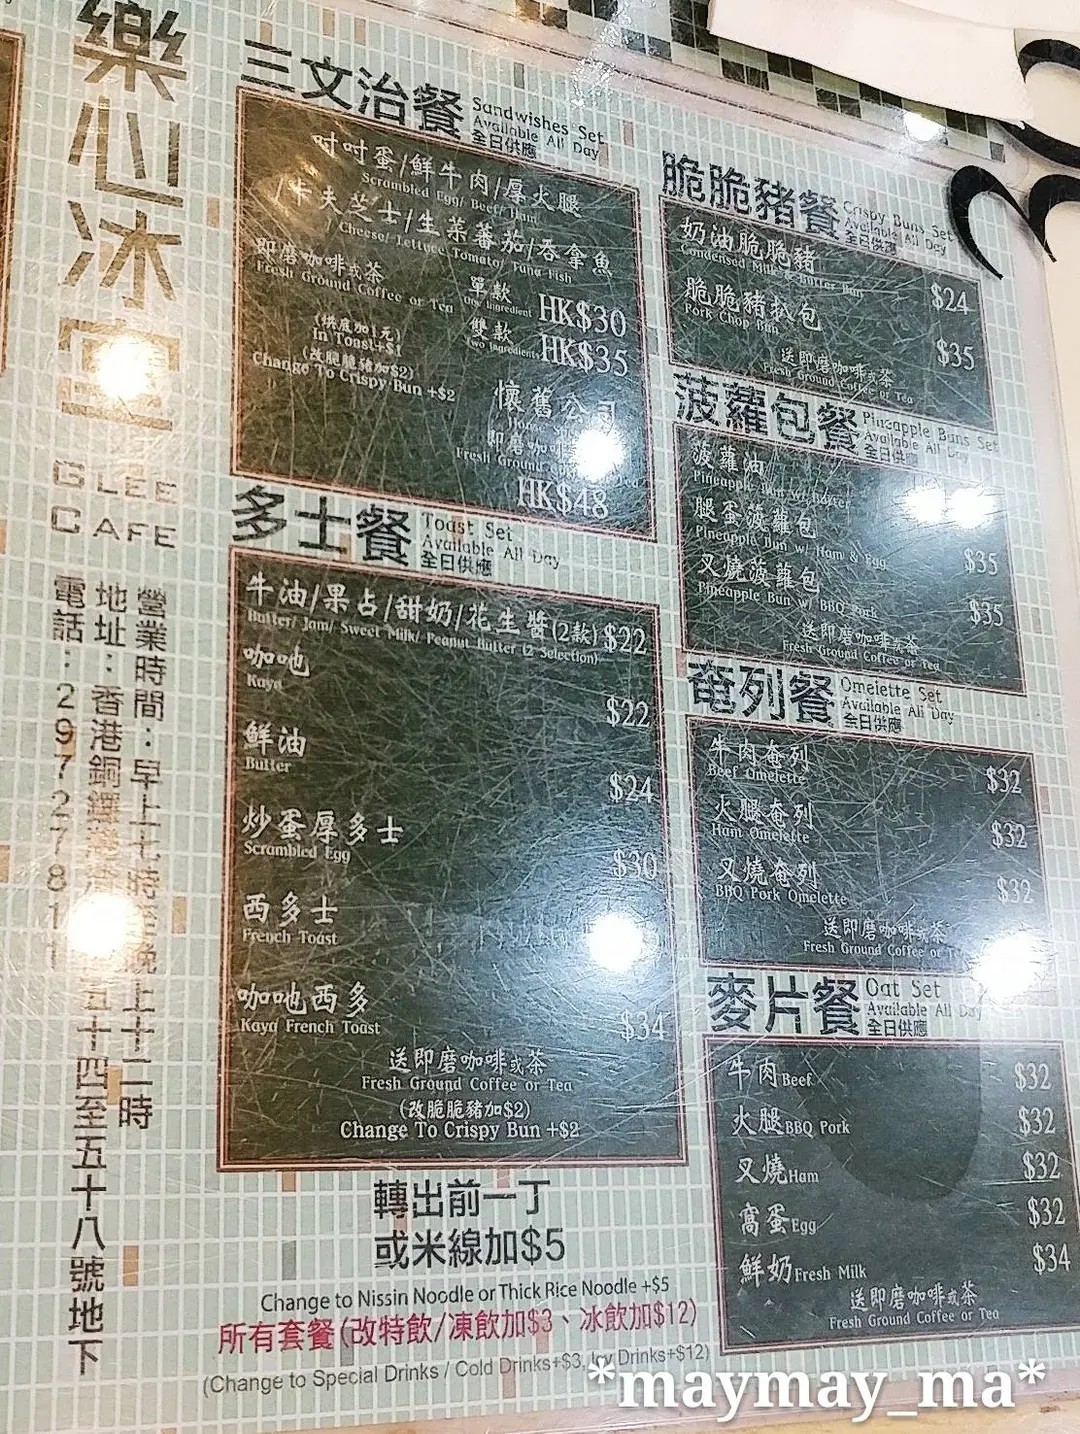 樂心冰室
GLEE
CAFE
營業時間：早上七時至晚上十二時
地址：香港銅鑼灣 五十四至五十八號地下
電話：2972781
三文治餐
Sandwishes Set
Available All Day
全日供應
吋吋蛋/鮮牛肉/厚火腿
Scrambled Egg/ Beef/ Ham
/卡夫芝士/生菜蕃茄/吞拿魚
/ Cheese/ Lettuce Tomato/ Tuna Fish
即磨咖啡或茶
Fresh Ground Coffee or Tea
單款
One Ingredient
HK$30
雙款
(Two Ingredients)
HK$35
(烘底加1元)
In Toast+$1
(改脆脆豬加$2)
Change To Crispy Bun +$2
懷舊公司
即磨咖
Fresh Ground
HK$48
多士餐
Toast Set
Available All Day
全日供應
牛油/果占/甜奶/花生醬(2款) $22
Butter/ Jam/ Sweet Milk/ Peanut Butter (2 Selection)
咖吔
Kaya
$22
鮮油
Butter
$24
炒蛋厚多士
Scrambled Egg
$30
西多士
French Toast
咖吔西多
Kaya French Toast
$34
送即磨咖啡或茶
Fresh Ground Coffee or Tea
(改脆脆豬加$2)
Change To Crispy Bun +$2
轉出前一丁
或米線加$5
Change to Nissin Noodle or Thick Rice Noodle +$5
所有套餐(改特飲/凍飲加$3、冰飲加$12)
(Change to Special Drinks / Cold Drinks+$3, Icy Drinks+$12)
脆脆豬餐
Crispy Buns Set
Available All Day
全日供應
奶油脆脆豬
Condensed Milk & Butter Bun
$24
脆脆豬扒包
Pork Chop Bun
$35
送即磨咖啡或茶
Fresh Ground Coffee or Tea
菠蘿包餐
Pineapple Buns Set
Available All Day
全日供應
菠蘿油
Pineapple Bun w/ Butter
腿蛋菠蘿包
Pineapple Bun w/ Ham & Egg
$35
叉燒菠蘿包
Pineapple Bun w/ BBQ Pork
$35
送即磨咖啡或茶
Fresh Ground Coffee or Tea
奄列餐
Omelette Set
Available All Day
全日供應
牛肉奄列
Beef Omelette
$32
火腿奄列
Ham Omelette
$32
叉燒奄列
BBQ Pork Omelette
$32
送即磨咖啡或茶
Fresh Ground Coffee or Tea
麥片餐
Oat Set
Available All Day
全日供應
牛肉Beef $32
火腿BBQ Pork $32
叉燒Ham $32
窩蛋Egg $32
鮮奶Fresh Milk $34
送即磨咖啡或茶
Fresh Ground Coffee or Tea
*maymay_ma*